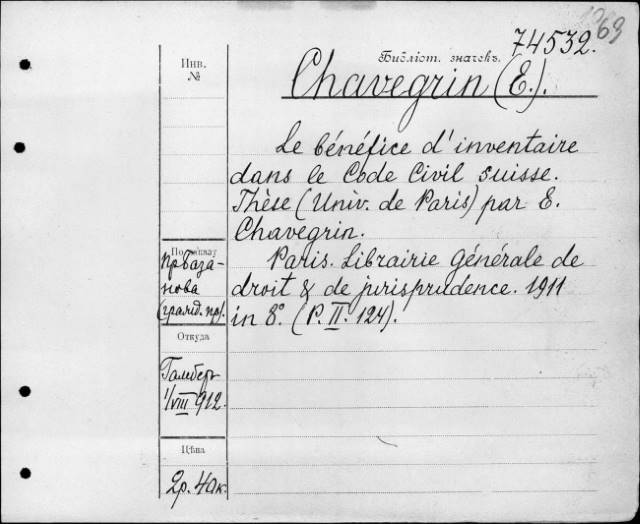 1969
74532.
Библіот. значекъ.
Chavegrin (E.).
Инв.
№
Le bénéfice d'inventaire
dans le Code Civil suisse.
Thèse (Univ. de Paris) par E.
Chavegrin.
Paris. Librairie générale de
droit & de jurisprudence. 1911
in 8° (P. II. 124).
По заказу
пр База-
нова
(гражд. пр).
Откуда
Гамберъ
1/VIII 912.
Цѣна
2р. 40к.